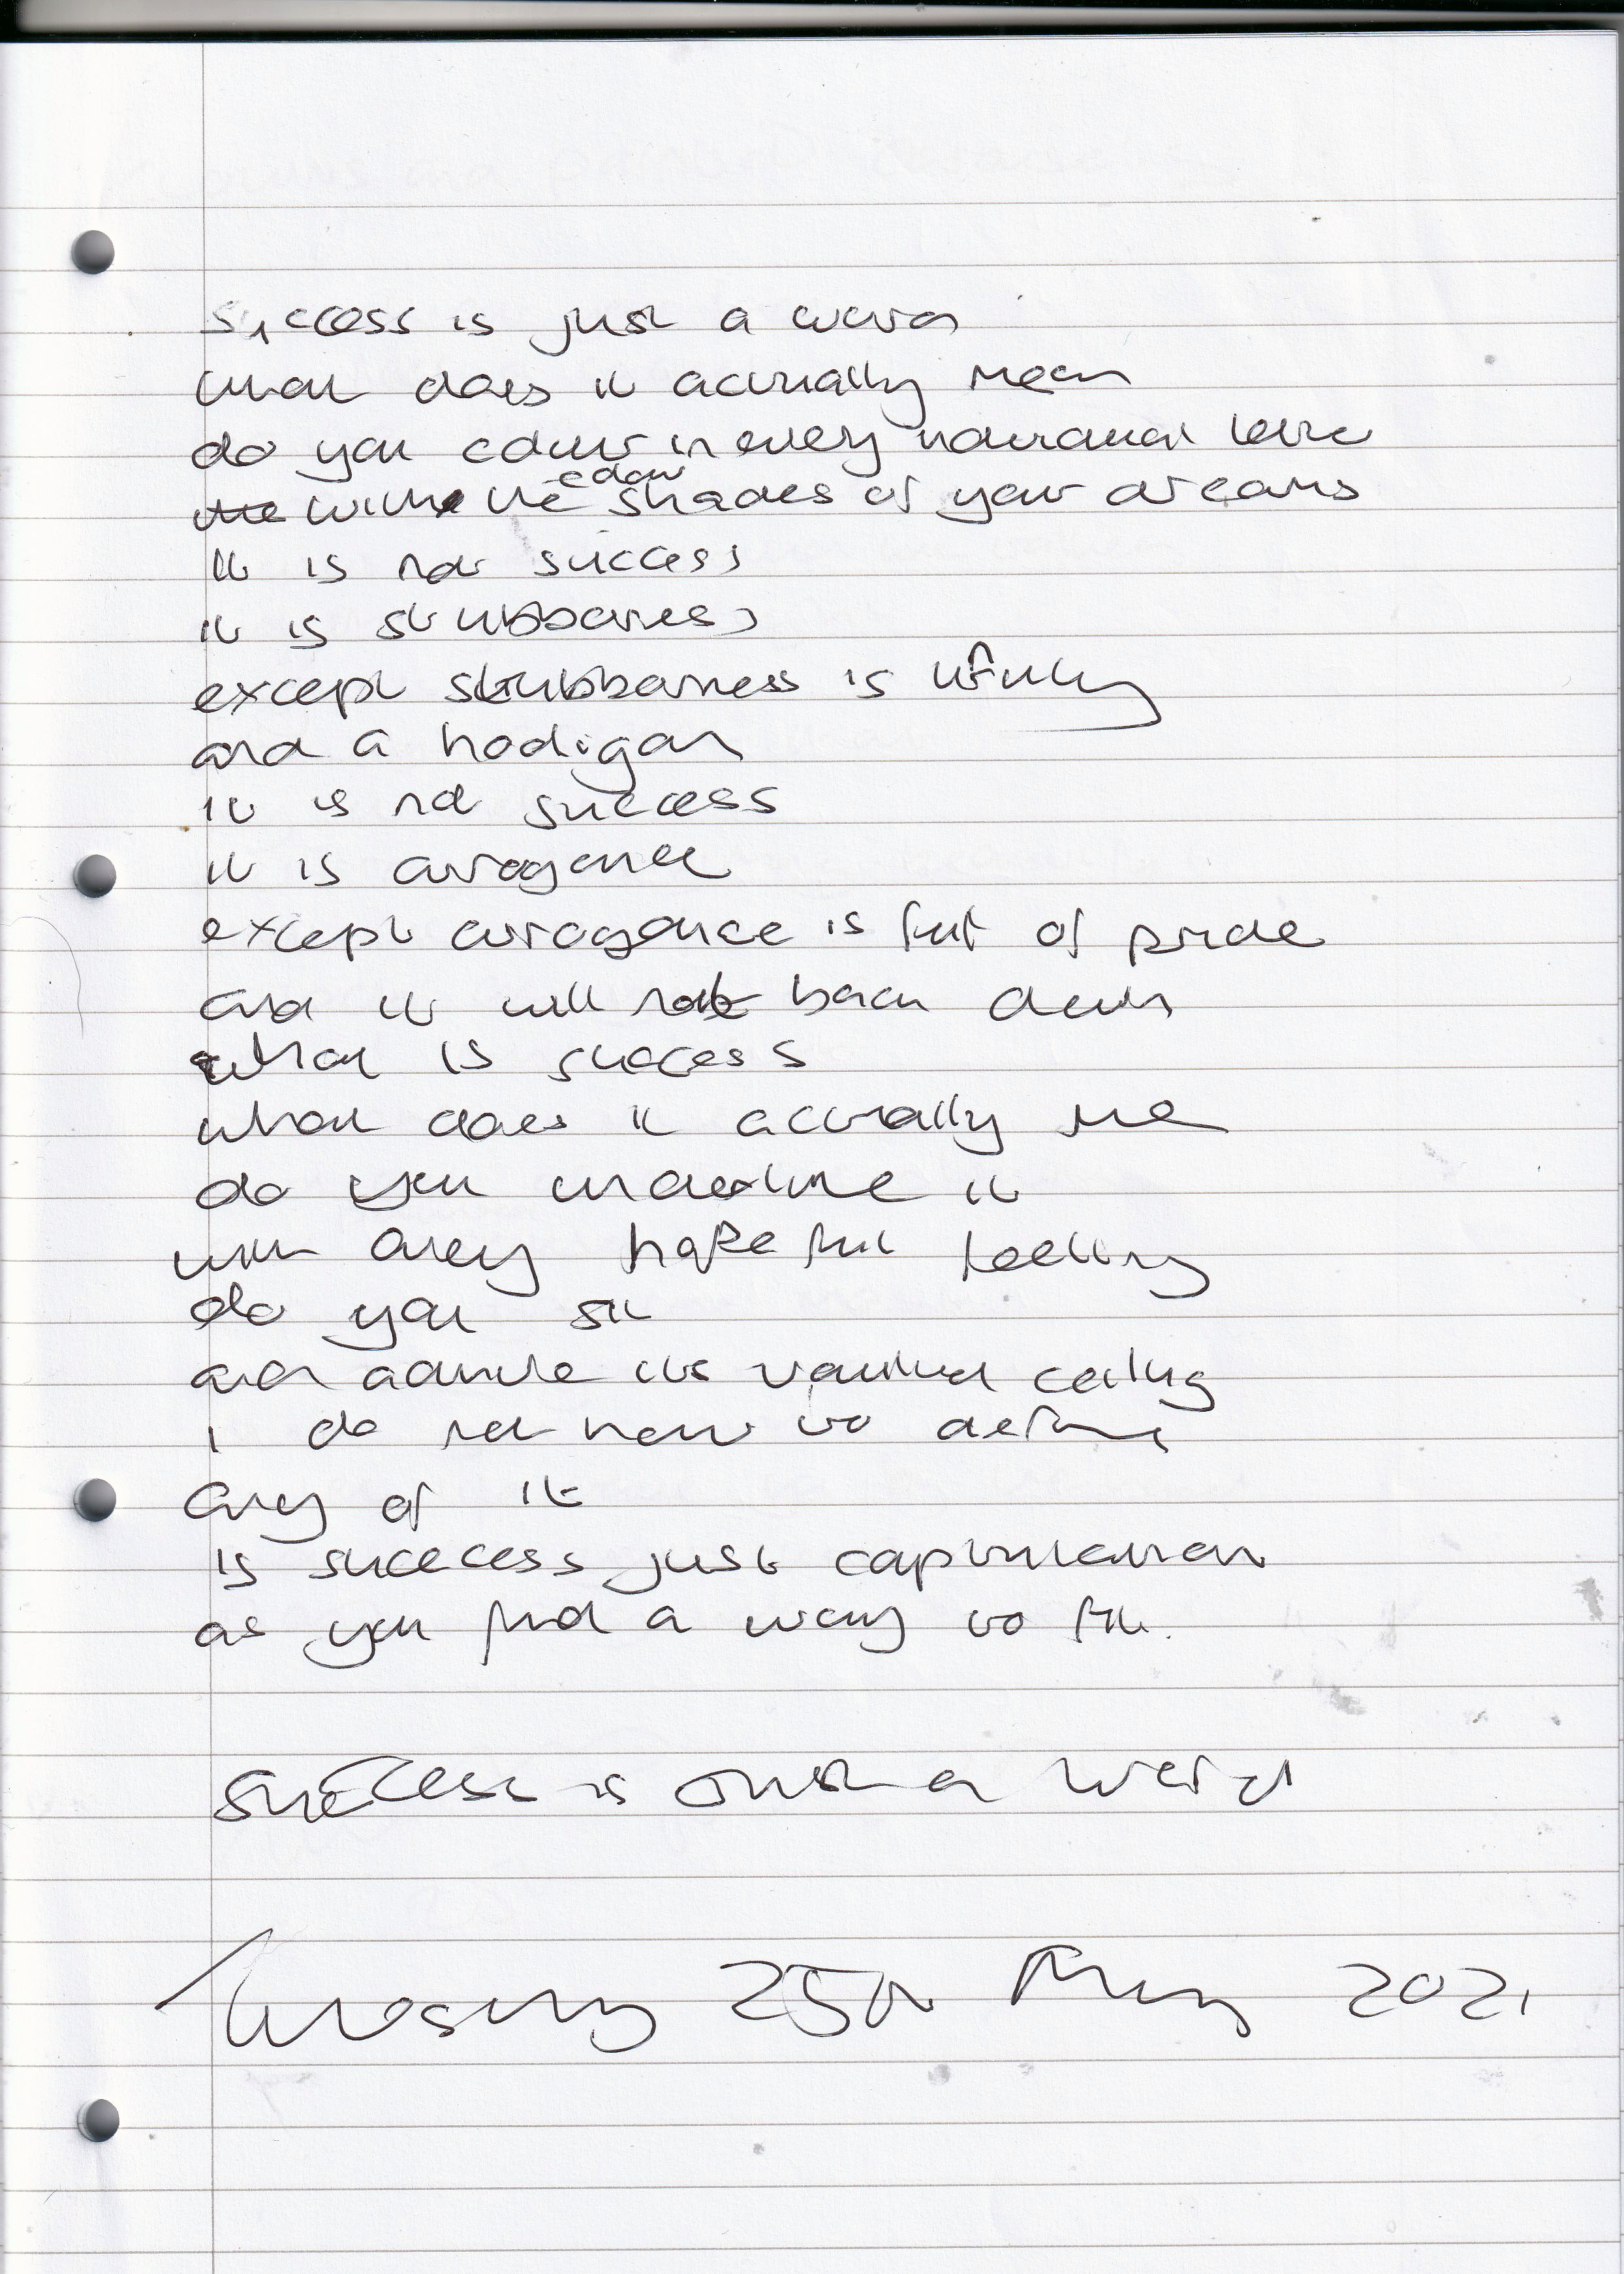 success is just a word
what does it actually mean
do you colour in every individual letter
the with the colour shades of your dreams
it is not success
it is stubborness
except stubborness is unruly
and a hooligan
it is not success
it is arrogance
except arrogance is full of pride
and it will not back down
what is success
what does it actually me
do you underline it
with every hopeful feeling
do you sit
and admire its vaulted ceiling
i do not know to define
any of it
is success just capitulation
as you find a way to fit.
success is just a word
Tuesday 25th May 2021